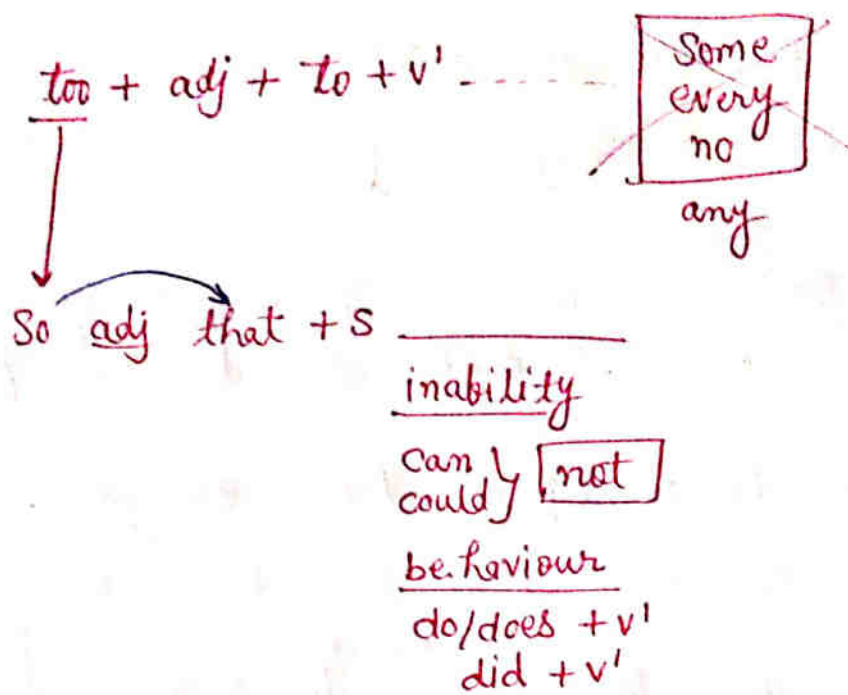 too + adj + to + v' - - - - - - -
some
every
no
any
So adj that + S ________
inability
can
could } not
be.haviour
do/does + v'
did + v'